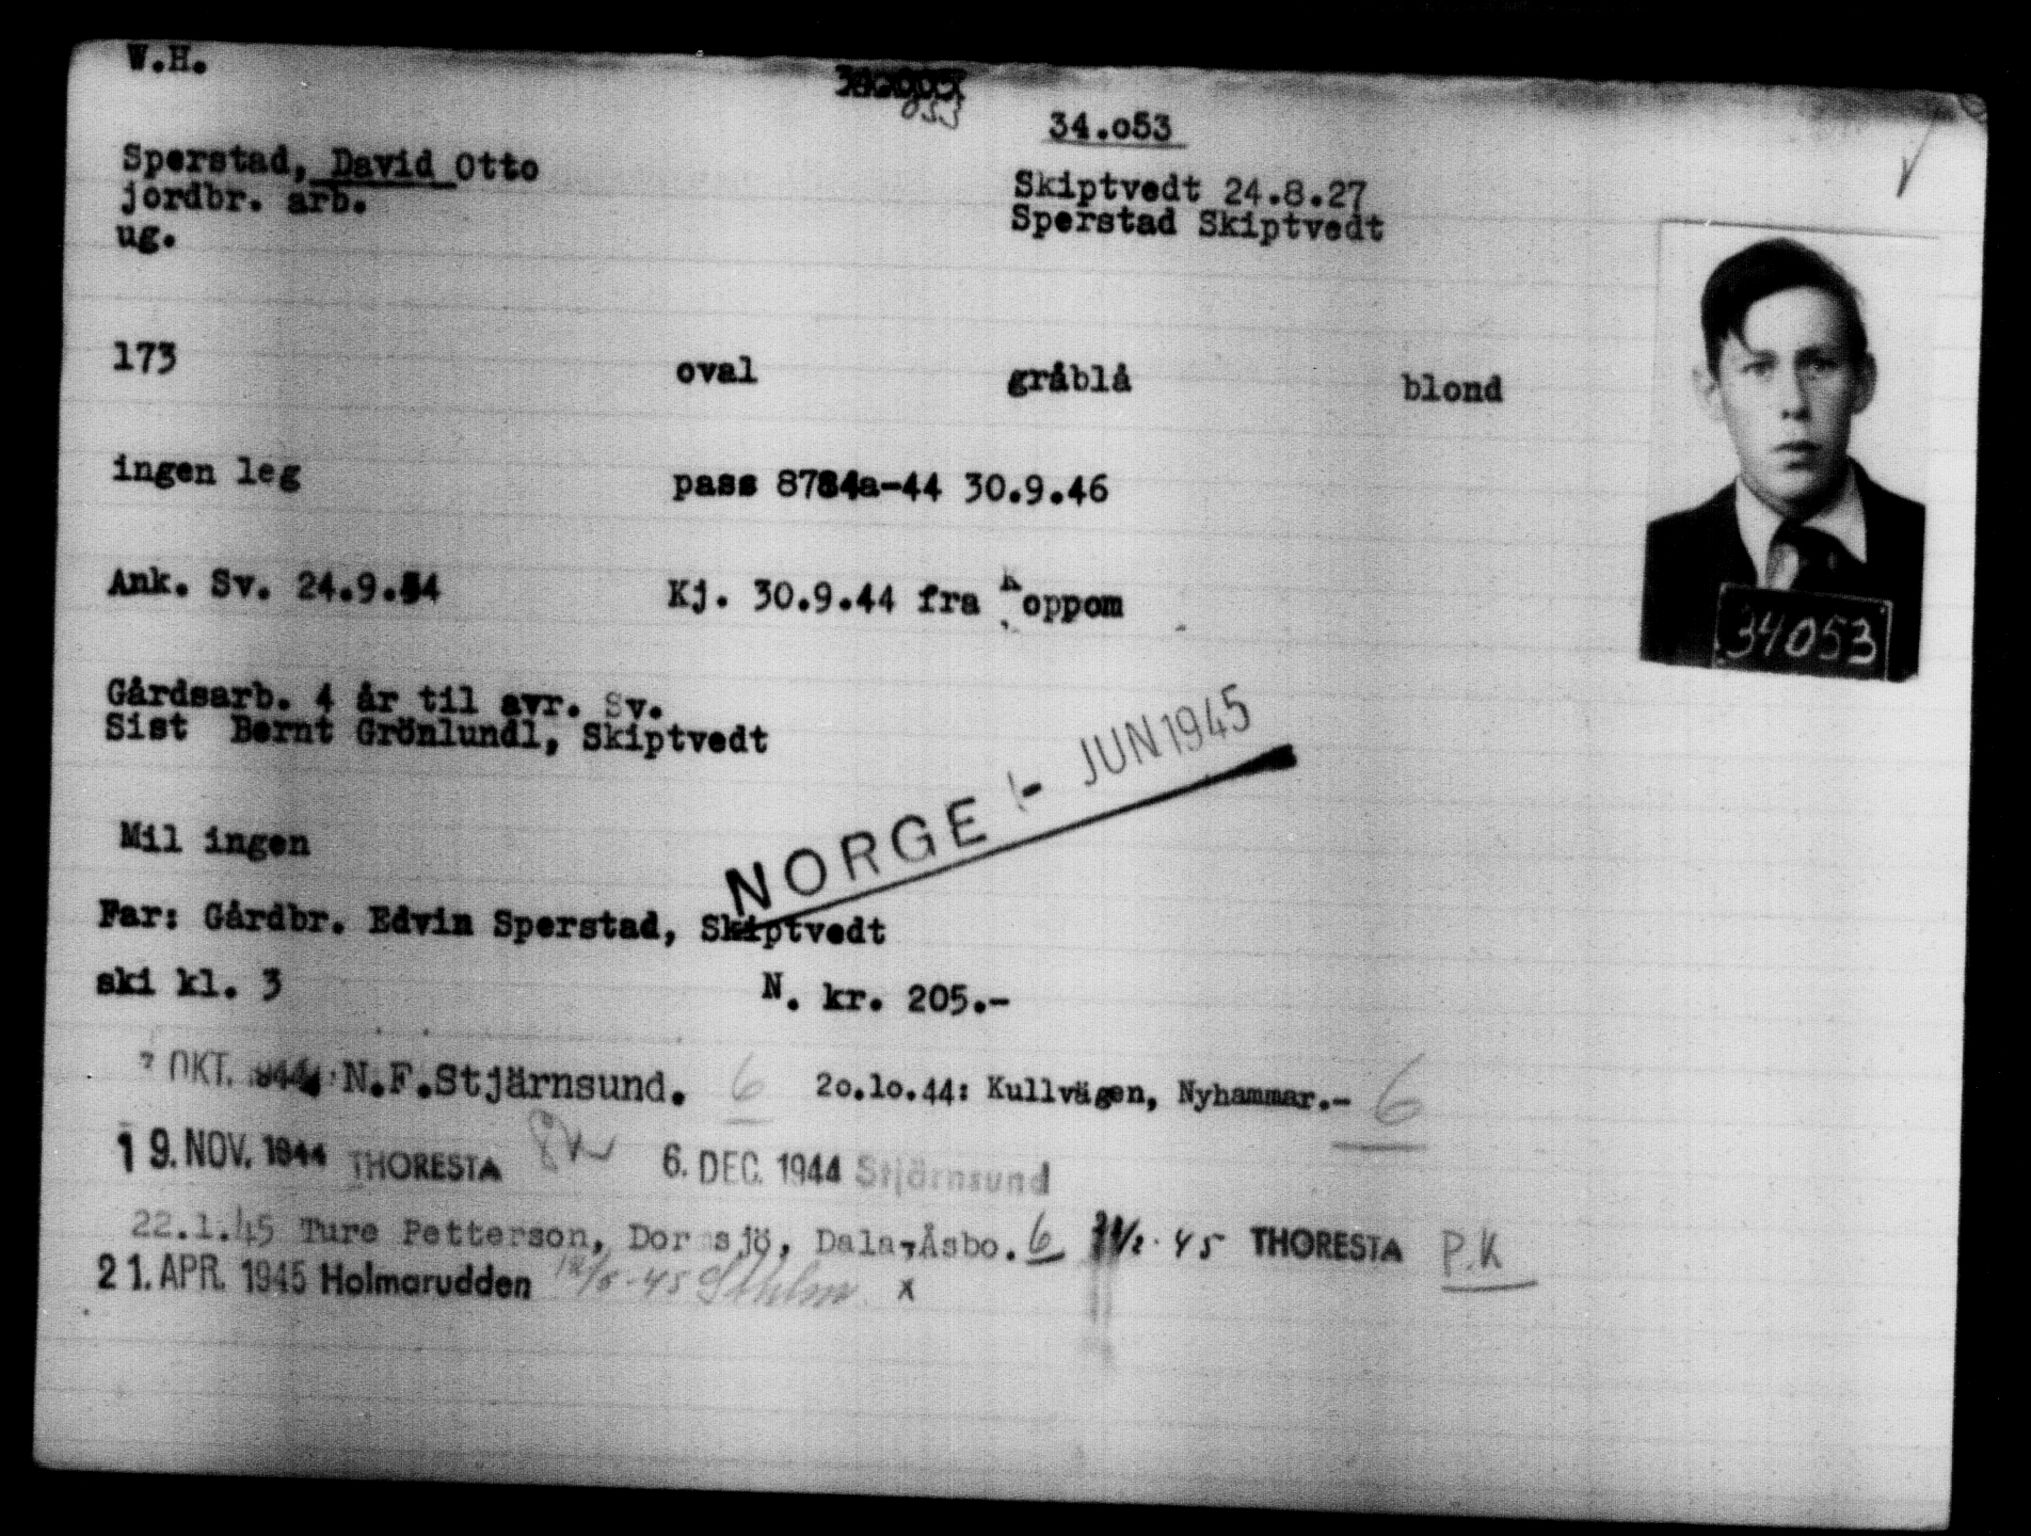 W.H.
053
34.o53
Sperstad, David Otto
Skiptvedt 24.8.27
jordbr. arb.
Sperstad Skiptvedt
ug.
173 oval gråblå blond
ingen leg pass 8784a-44 30.9.46
Ank. Sv. 24.9.44 Kj. 30.9.44 fra Koppom
34053
Gårdsarb. 4 år til avr. Sv.
Sist Bernt Grönlundl, Skiptvedt
NORGE - JUN 1945
Mil ingen
Far: Gårdbr. Edvin Sperstad, Skiptvedt
ski kl. 3 N. kr. 205.-
7 OKT. 1944 N.F.Stjärnsund. 6 2o.1o.44: Kullvägen, Nyhammar.- 6
19. NOV. 1944 THORESTA 6. DEC. 1944 Stjärnsund
22.1.45 Ture Petterson, Dormsjö, Dala-Åsbo. 6 45 THORESTA P.K
21. APR. 1945 Holmarudden 45 Sthlm x